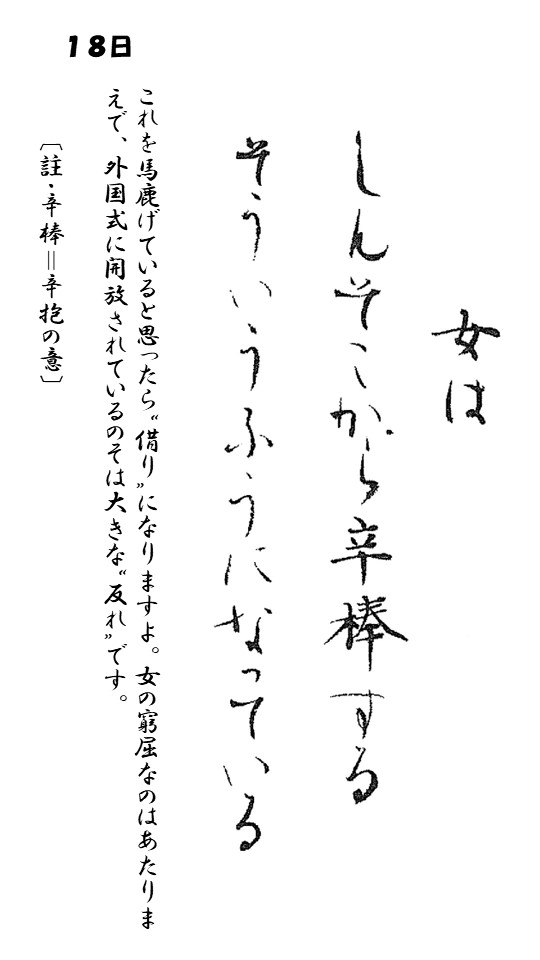 18日
女は
しんそこから辛棒する
そういうふうになっている
これを馬鹿げていると思ったら“借り”になりますよ。女の窮屈なのはあたりま
えで、外国式に開放されているのそは大きな“反れ”です。
〔註・辛棒＝辛抱の意〕